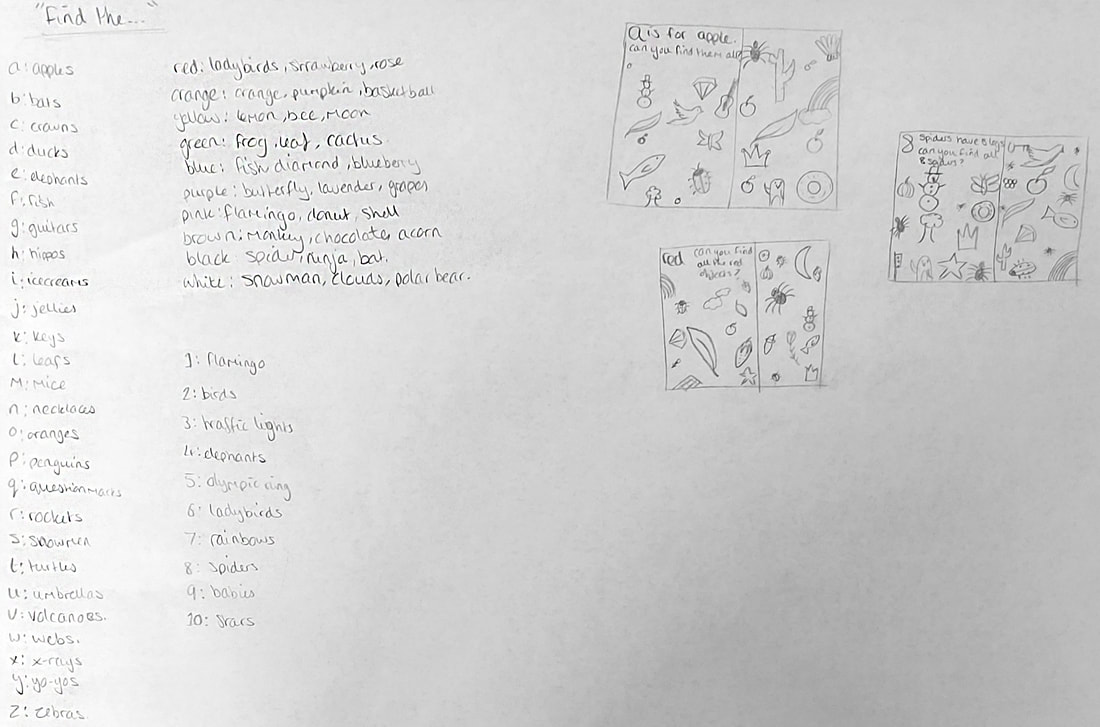 "Find the..."
a: apples
b: bats
c: crowns
d: ducks
e: elephants
f: fish
g: guitars
h: hippos
i: icecreams
j: jellies
k: keys
l: leafs
m: mice
n: necklaces
o: oranges
p: penguins
q: questionmarks
r: rockets
s: snowmen
t: turtles
u: umbrellas
v: volcanoes.
w: webs.
x: x-rays
y: yo-yos
z: zebras.
red: ladybirds, strawberry, rose
orange: orange, pumpkin, basketball
yellow: lemon, bee, moon
green: frog, leaf, cactus
blue: fish, diamond, blueberry
purple: butterfly, lavender, grapes
pink: flamingo, donut, shell
brown: monkey, chocolate, acorn
black spider, ninja, bat.
white: snowman, clouds, polar bear.
1: flamingo
2: birds
3: traffic lights
4: elephants
5: olympic ring
6: ladybirds
7: rainbows
8: spiders
9: babies
10: stars
a is for apple.
can you find them all?
red can you find
all the red
objects?
8 spiders have 8 legs
can you find all
8 spiders?